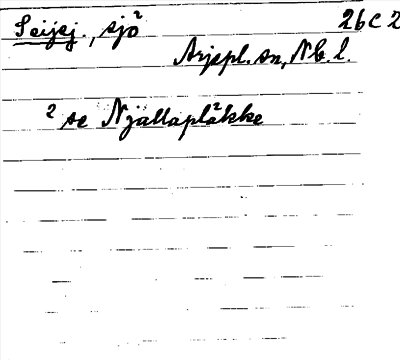 Seijej., sjö² 26C2
Arjepl. sn, Nb. l.
² se Njallaplå²kke